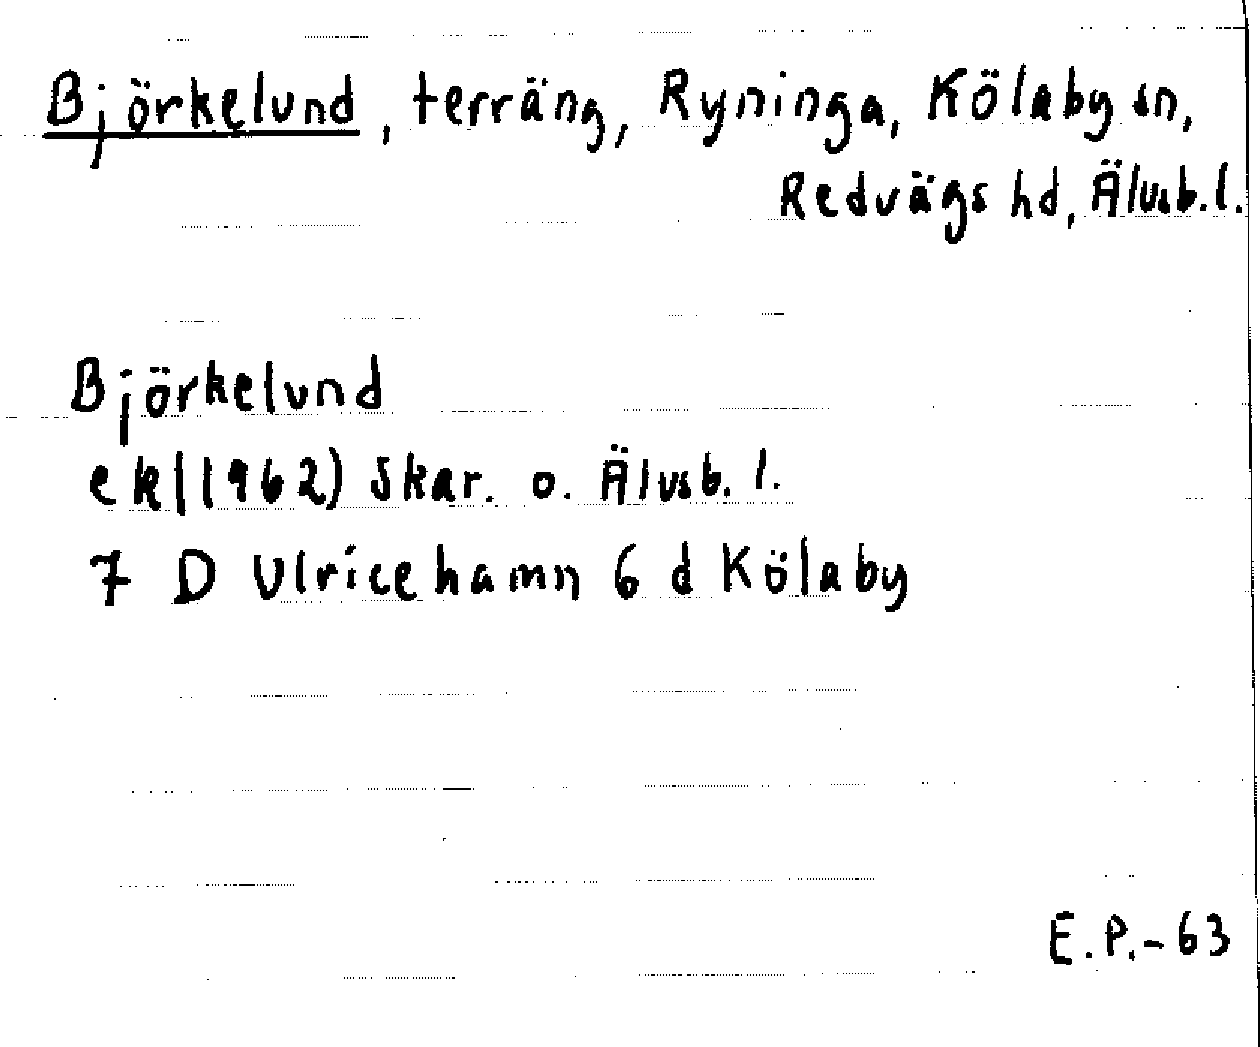 Björkelund, terräng, Ryninga, Kölaby sn,
Redvägs hd, Älvsb. l.
Björkelund
ek (1962) Skar. o. Älvsb. l.
7 D Ulricehamn 6 d Kölaby
E.P.-63